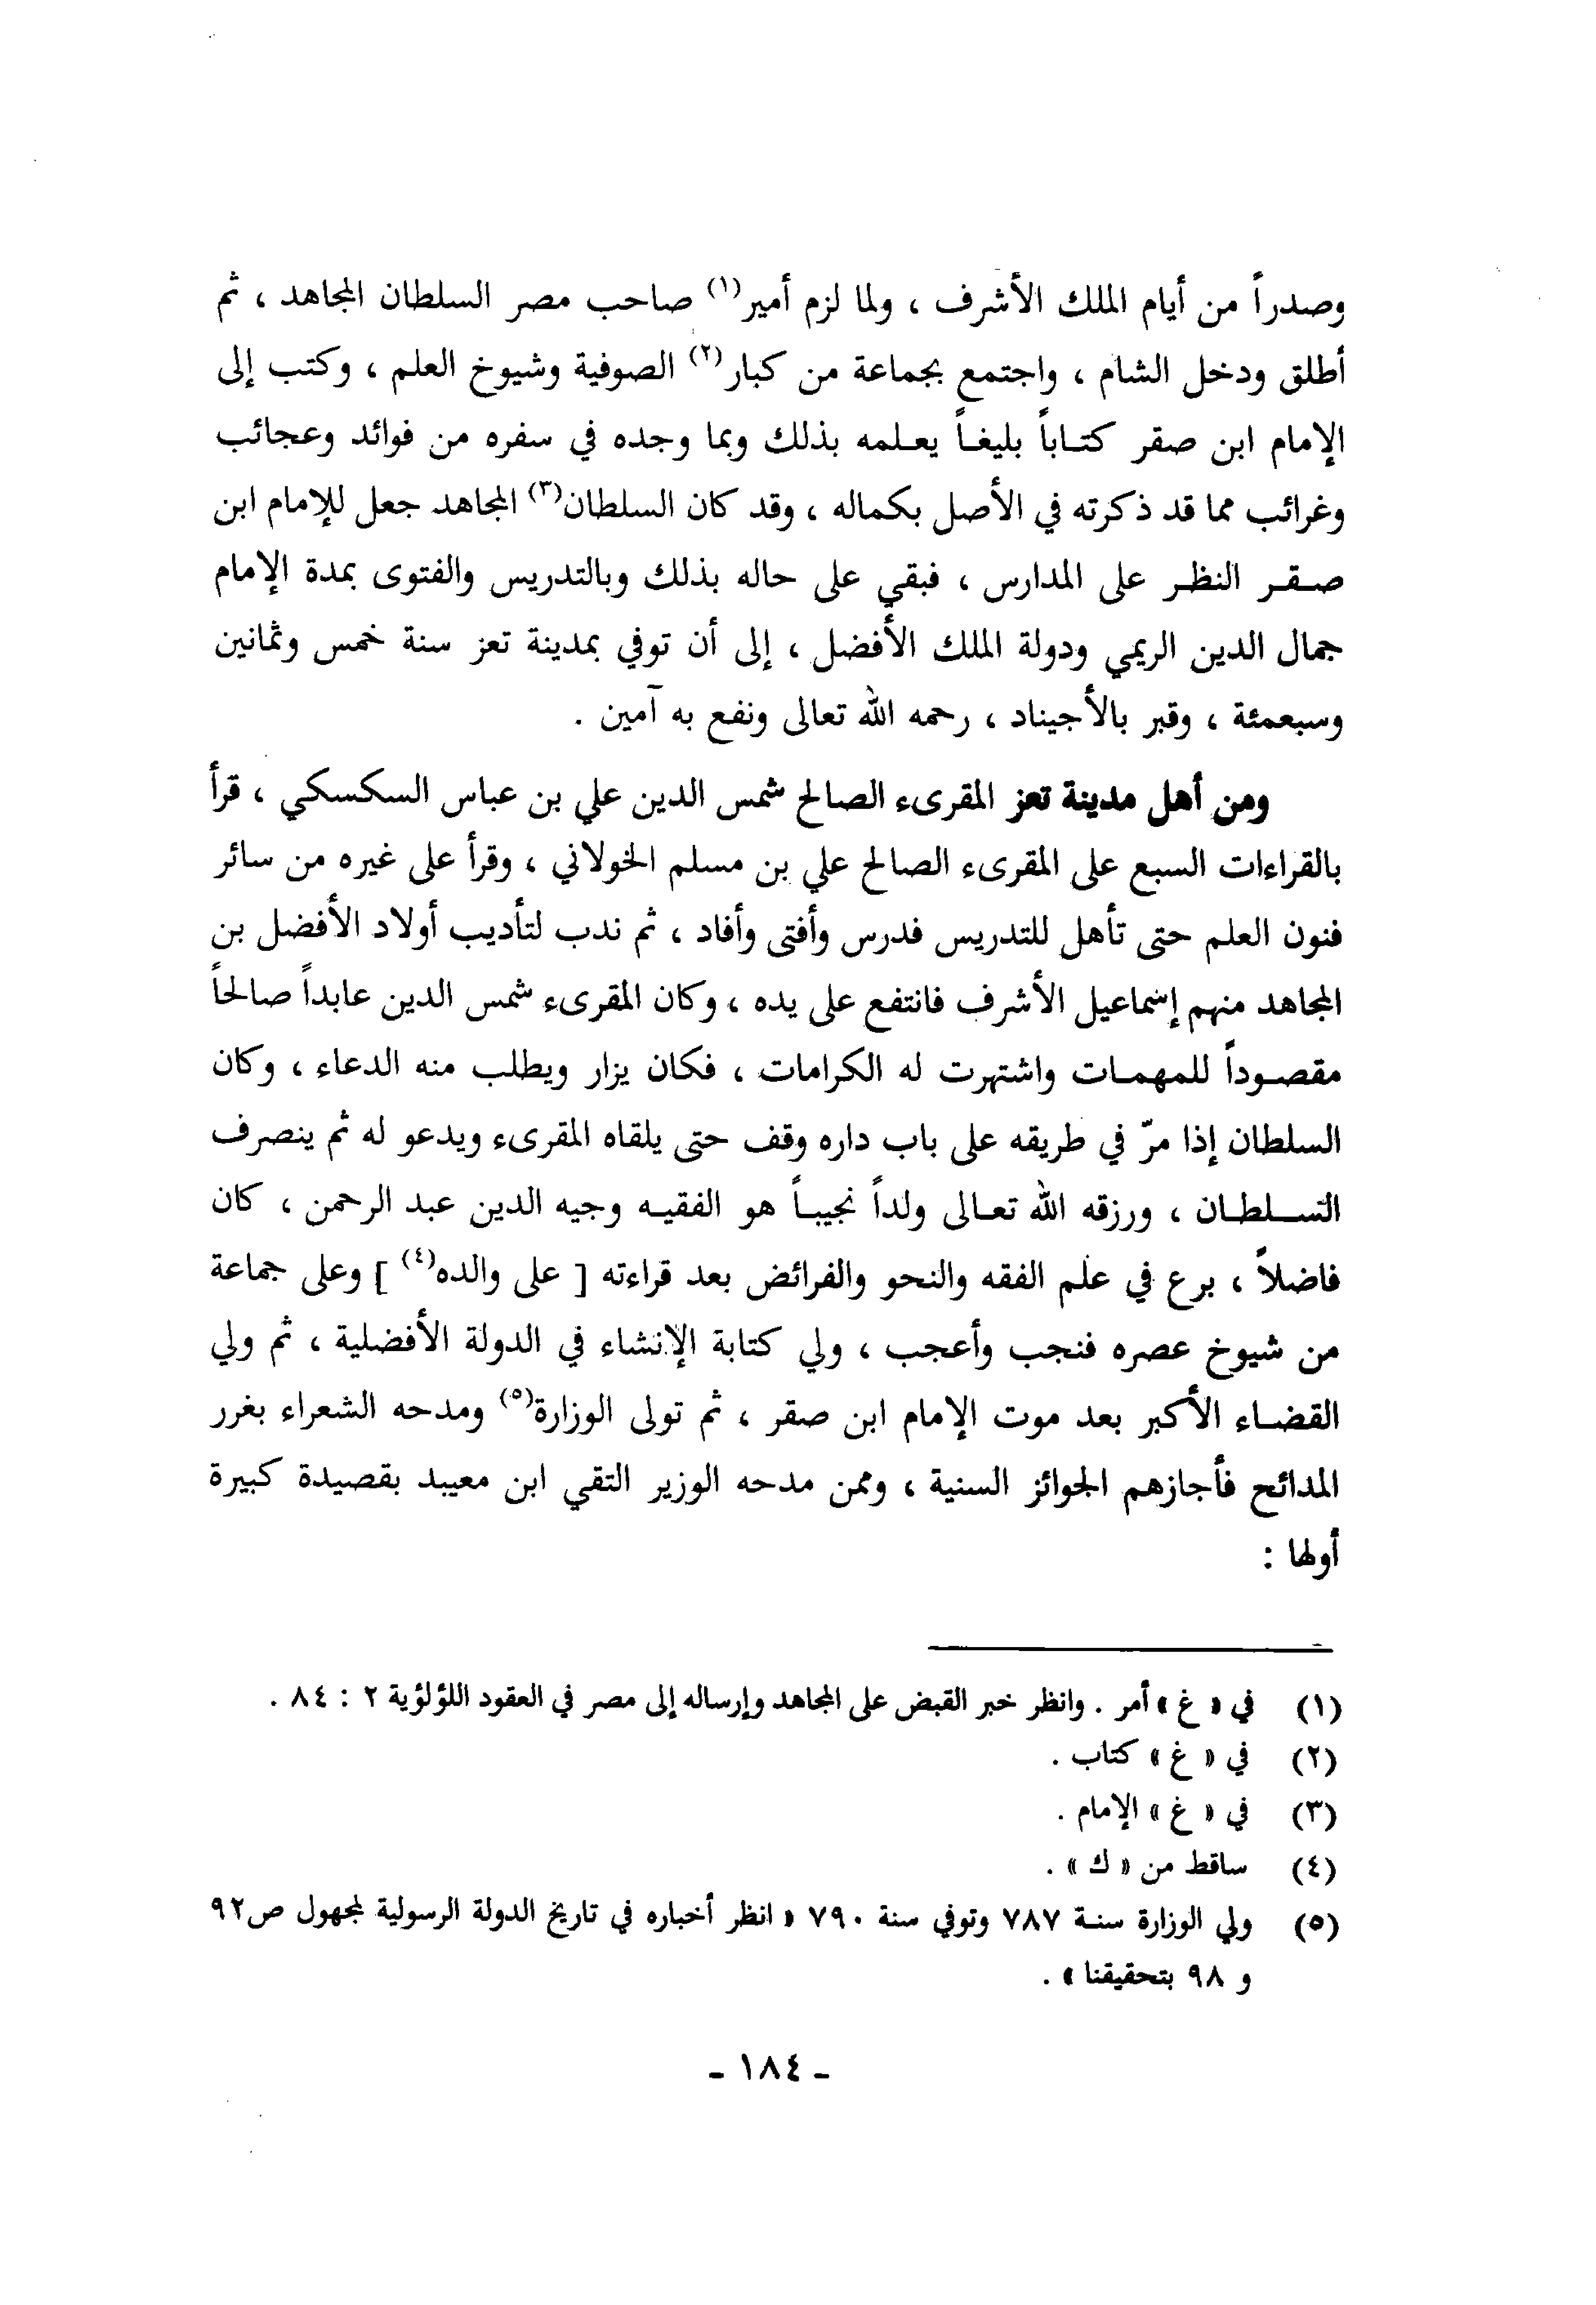 وصدراً من أيام الملك الأشرف ، ولما لزم أمير(١) صاحب مصر السلطان المجاهد ، ثم
أطلق ودخل الشام ، واجتمع بجماعة من كبار(٢) الصوفية وشيوخ العلم ، وكتب إلى
الإمام ابن صقر كتاباً بليغاً يعلمه بذلك وبما وجده في سفره من فوائد وعجائب
وغرائب مما قد ذكرته في الأصل بكماله ، وقد كان السلطان(٣) المجاهد جعل للإمام ابن
صقر النظر على المدارس ، فبقي على حاله بذلك وبالتدريس والفتوى بمدة الإمام
جمال الدين الريمي ودولة الملك الأفضل ، إلى أن توفي بمدينة تعز سنة خمس وثمانين
وسبعمئة ، وقبر بالأجيناد ، رحمه الله تعالى ونفع به آمين .
ومن أهل مدينة تعز المقرىء الصالح شمس الدين علي بن عباس السكسكي ، قرأ
بالقراءات السبع على المقرىء الصالح علي بن مسلم الخولاني ، وقرأ على غيره من سائر
فنون العلم حتى تأهل للتدريس فدرس وأفتى وأفاد ، ثم ندب لتأديب أولاد الأفضل بن
المجاهد منهم إسماعيل الأشرف فانتفع على يده ، وكان المقرىء شمس الدين عابداً صالحاً
مقصوداً للمهمات واشتهرت له الكرامات ، فكان يزار ويطلب منه الدعاء ، وكان
السلطان إذا مرّ في طريقه على باب داره وقف حتى يلقاه المقرىء ويدعو له ثم ينصرف
السلطان ، ورزقه الله تعالى ولداً نجيباً هو الفقيه وجيه الدين عبد الرحمن ، كان
فاضلاً ، برع في علم الفقه والنحو والفرائض بعد قراءته [ على والده(٤) ] وعلى جماعة
من شيوخ عصره فنجب وأعجب ، ولي كتابة الإنشاء في الدولة الأفضلية ، ثم ولي
القضاء الأكبر بعد موت الإمام ابن صقر ، ثم تولى الوزارة(٥) ومدحه الشعراء بغرر
المدائح فأجازهم الجوائز السنية ، وممن مدحه الوزير التقي ابن معيبد بقصيدة كبيرة
أولها :
(١) في « غ » أمر . وانظر خبر القبض على المجاهد وإرساله إلى مصر في العقود اللؤلؤية ٢ : ٨٤ .
(٢) في « غ » كتاب .
(٣) في « غ » الإمام .
(٤) ساقط من « ك » .
(٥) ولي الوزارة سنة ٧٨٧ وتوفي سنة ٧٩٠ « انظر أخباره في تاريخ الدولة الرسولية لمجهول ص٩٢
و ٩٨ بتحقيقنا » .
- ١٨٤ -